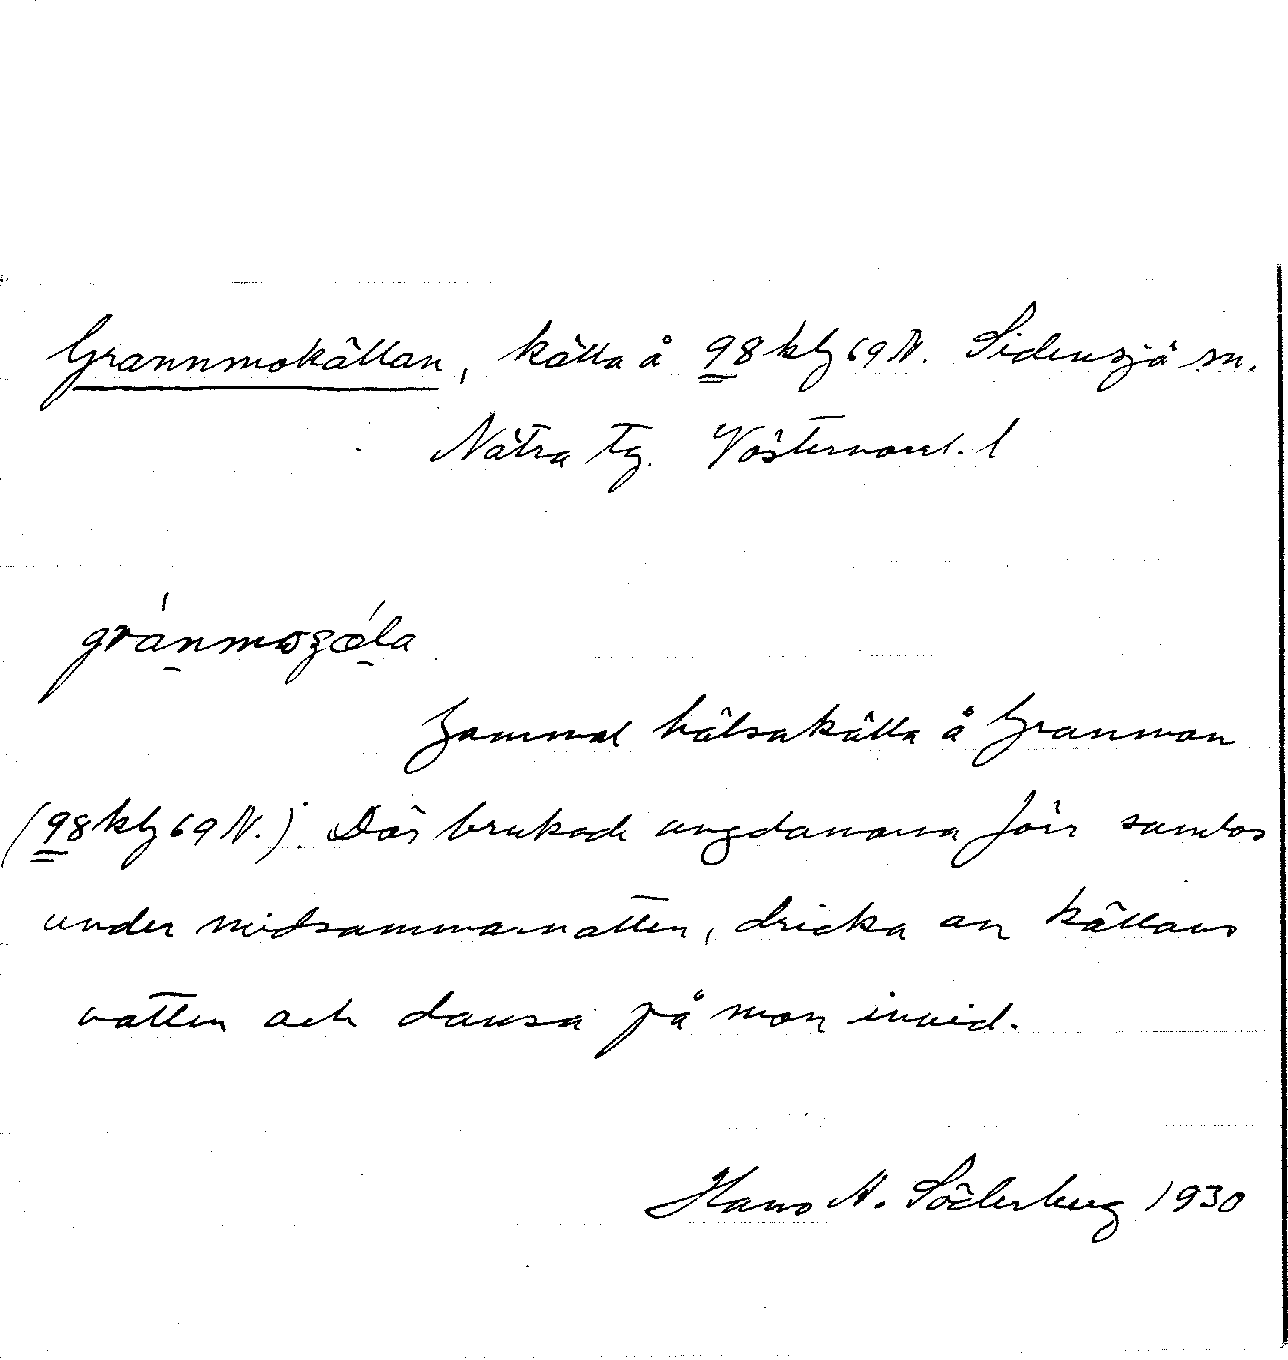 Grannmokällan, källa å 98 kbl 69 N. Sidensjö sn.
Nätra tg. Västernorrl. l
gránmoʒǽla
Gammal hälsokälla å Granmon
(98 kbl 69 N.) Där brukade ungdomarna förr samlas
under midsommarnatten, dricka av källans
vatten och dansa på mon invid.
Hans A. Söderberg 1930